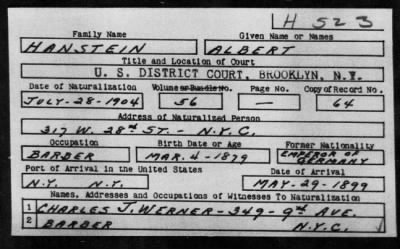 H 523
Family Name Given Name or Names
HANSTEIN ALBERT
Title and Location of Court
U. S. DISTRICT COURT, BROOKLYN, N.Y.
Date of Naturalization Volume or Bundle No. Page No. Copy of Record No.
JULY-28-1904 56 — 64
Address of Naturalized Person
317 W. 28th ST. - N.Y.C.
Occupation Birth Date or Age Former Nationality
BARBER MAR. 4-1879 EMPEROR OF GERMANY
Port of Arrival in the United States Date of Arrival
N.Y. N.Y. MAY-29-1899
Names, Addresses and Occupations of Witnesses To Naturalization
1 CHARLES J. WERNER-349-9th AVE.
2 BARBER N.Y.C.